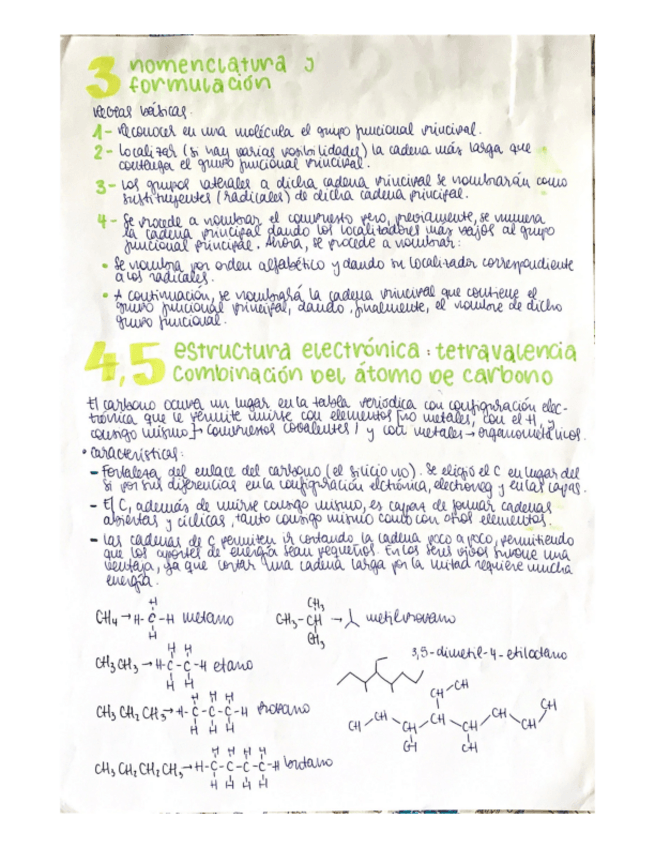 3 nomenclatura y
formulación
Reglas básicas:
1- Reconocer en una molécula el grupo funcional principal.
2- Localizar (si hay varias posibilidades) la cadena más larga que
contenga el grupo funcional principal.
3- Los grupos laterales a dicha cadena principal se nombrarán como
sustituyentes (radicales) de dicha cadena principal.
4- Se procede a nombrar el compuesto pero, previamente, se numera
la cadena principal dando los localizadores más bajos al grupo
funcional principal. Ahora, se procede a nombrar:
• Se nombra por orden alfabético y dando su localizador correspondiente
a los radicales.
• A continuación, se nombrará la cadena principal que contiene el
grupo funcional principal, dando, finalmente, el nombre de dicho
grupo funcional.
4,5 estructura electrónica: tetravalencia
combinación del átomo de carbono
El carbono ocupa un lugar en la tabla periódica con configuración elec-
trónica que le permite unirse con elementos [no metales, con el H, y
consigo mismo] → compuestos covalentes / y con metales → organometálicos.
• características:
- Fortaleza del enlace del carbono (el silicio no). Se eligió el C en lugar del
Si por sus diferencias en la configuración elctrónica, electroneg y en las capas.
- El C, además de unirse consigo mismo, es capaz de formar cadenas
abiertas y cíclicas, tanto consigo mismo como con otros elementos.
- Las cadenas de C permiten ir cortando la cadena poco a poco, permitiendo
que los aportes de energía sean pequeños. En los seres vivos supone una
ventaja, ya que cortar una cadena larga por la mitad requiere mucha
energía.
H
CH₄ → H-C-H metano
H
CH₃
CH₃-CH → metilpropano
CH₃
H H
CH₃CH₃ → H-C-C-H etano
H H
3,5-dimetil-4-etiloctano
H H H
CH₃CH₂CH₃ → H-C-C-C-H propano
H H H
CH CH
CH CH CH CH CH CH CH CH
CH CH
H H H H
CH₃CH₂CH₂CH₃ → H-C-C-C-C-H butano
H H H H